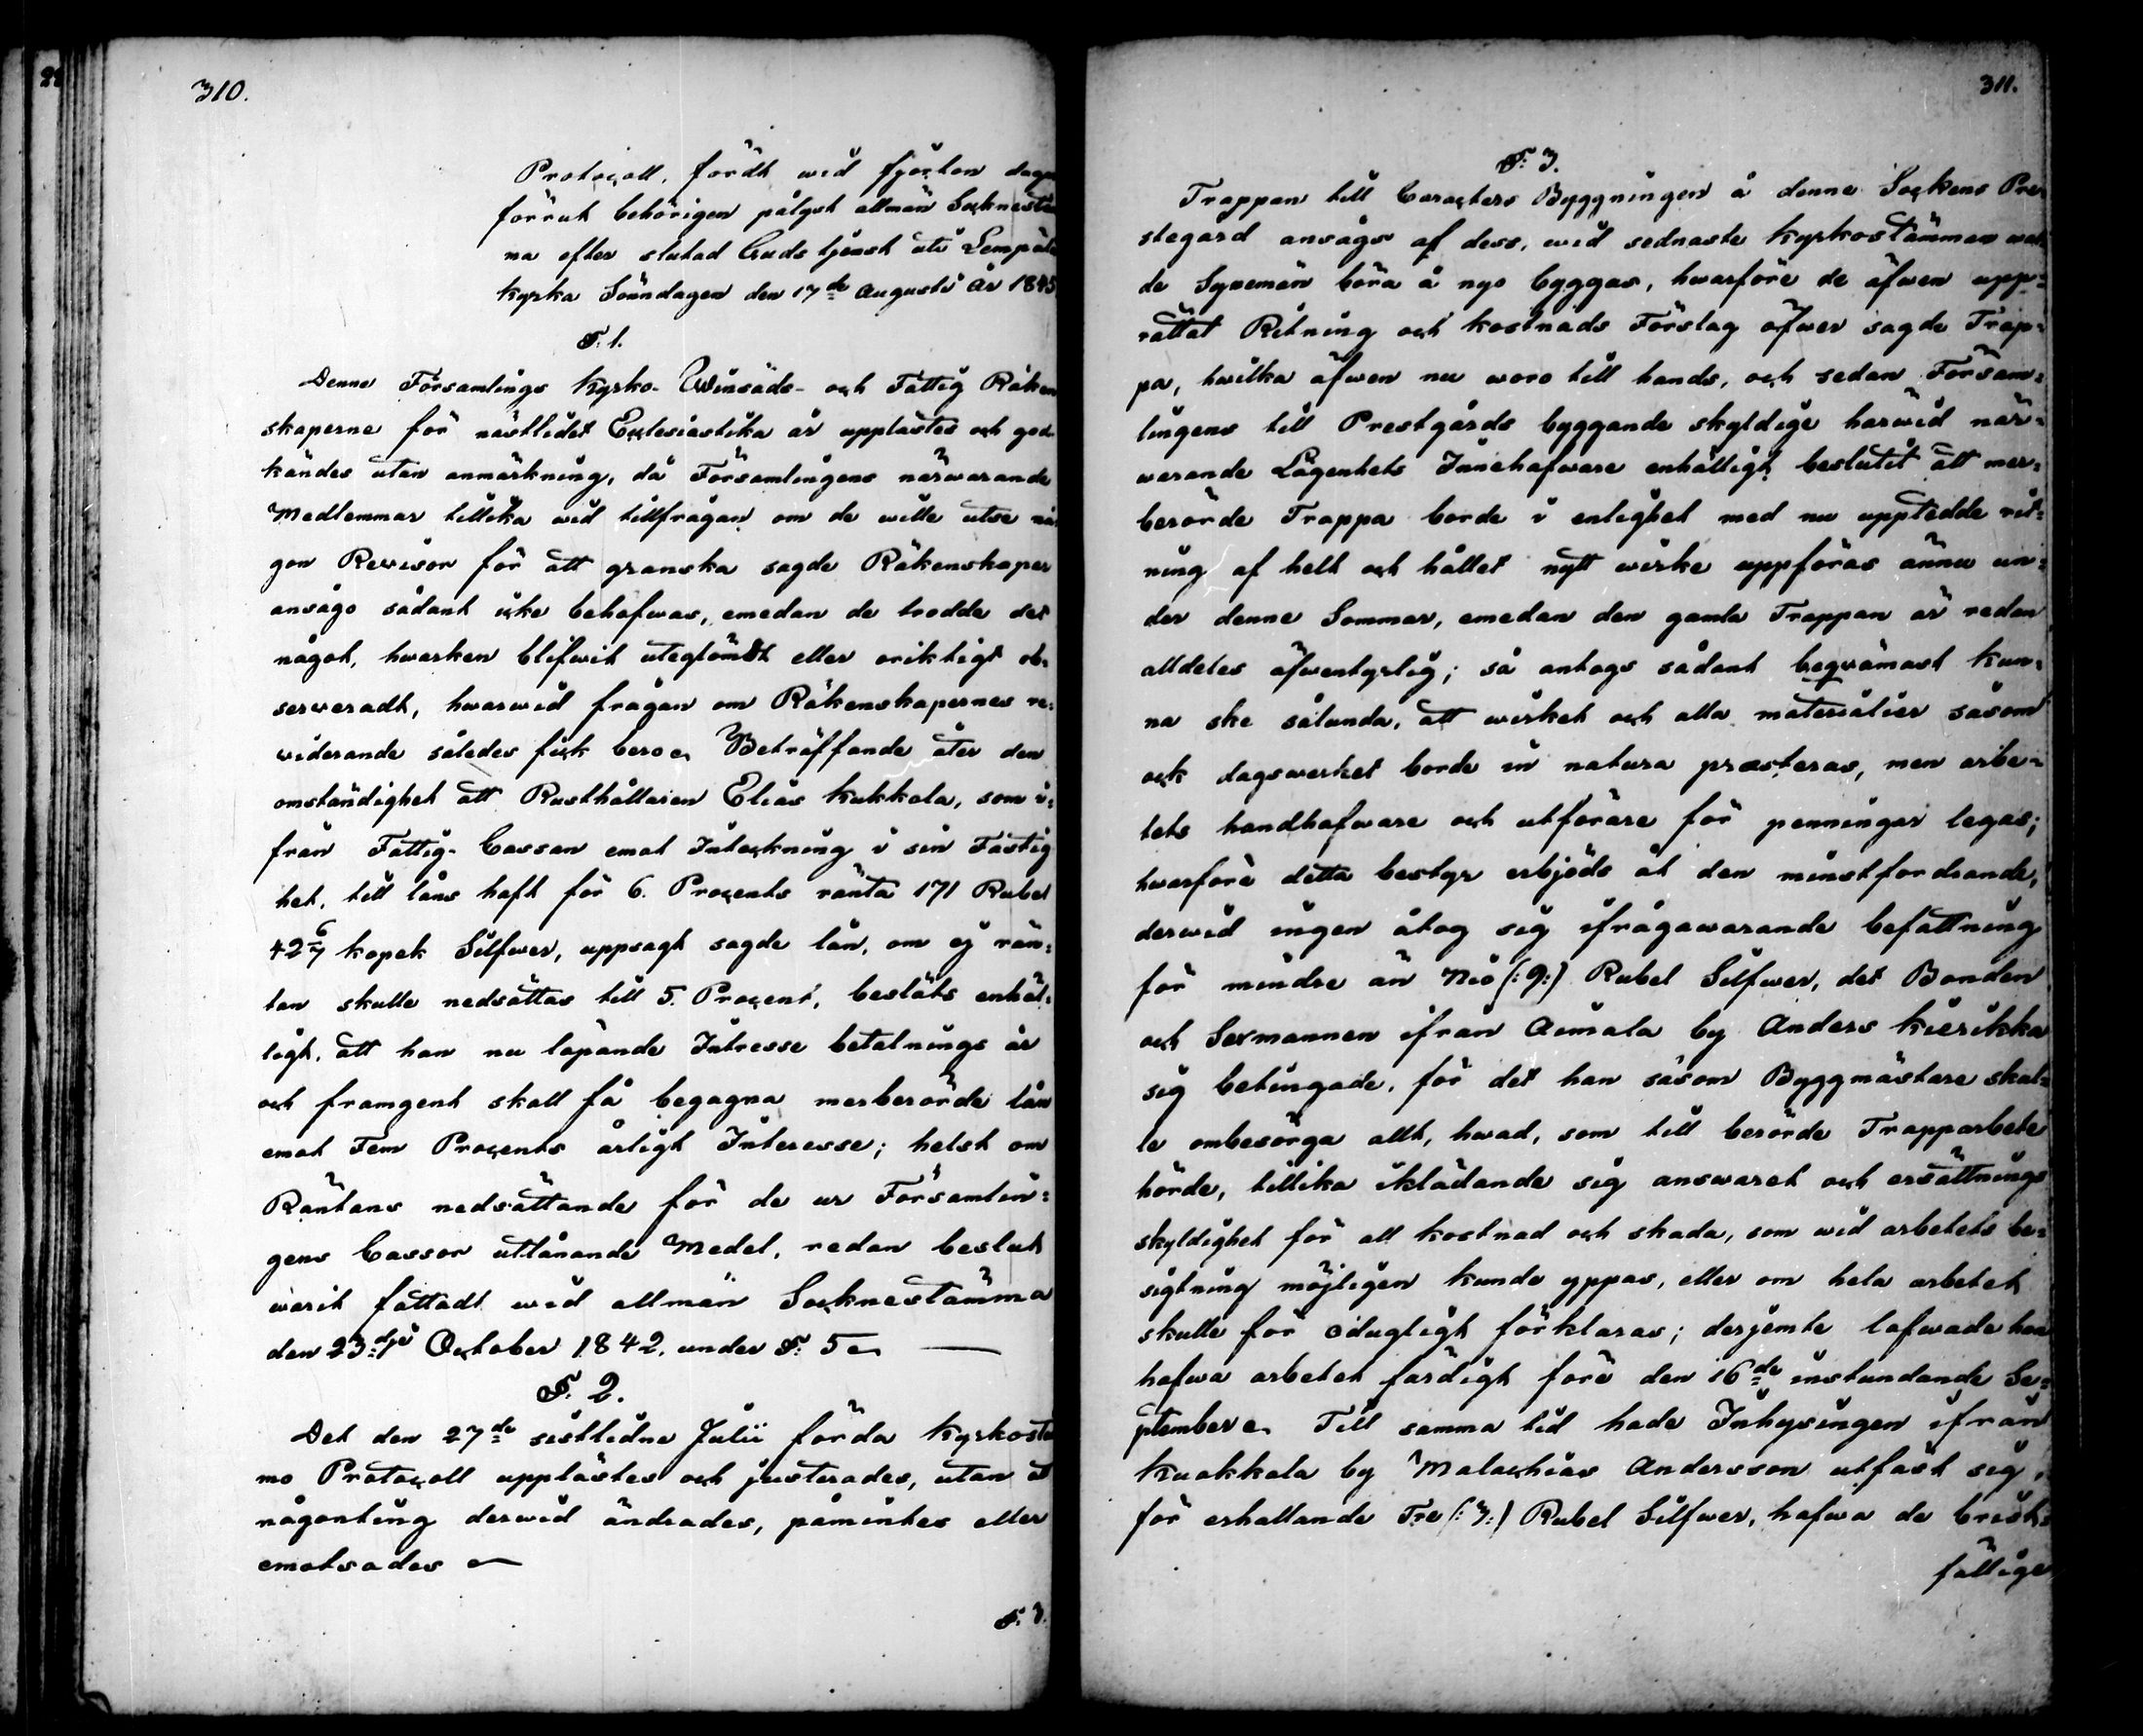 310.
Protocoll, fördt wid fjorton dagar
förrut behörigen pålyst allmän Socknestäm
na efter slutad Gudstjenst uti Lempäla
kyrka Sönndagen den 17de Augusti År 1845
§. 1.
Denne Församlings Kyrko- Winsäds- och Fattig Räken
skaperne för nästlidet Ecclesiastika år upplästes och god-
kändes utan anmärkning, då Församlingens närwarande
Medlemmar tillika wid tillfrågan om de wille utse nå
gon Revisor för att granska sagde Räkenskaper
ansågo sådant icke behöfwas, emedan de trodde det
något, hwarken blifwit uteglömdt eller oriktigt ob-
serveradt, hwarwid frågan om Räkenskapernes re-
viderande således fick bero. Beträffande åter den
omständighet att Rusthållaren Elias Kukkola, som i-
från Fattig-Cassan emot Inteckning i sin Fastig
het, till låns haft för 6. Procents ränta 171 Rubel
42 6/7 kopek Silfwer, uppsagt sagde lån, om ej rän-
tan skulle nedsättas till 5. Procent, beslöts enhäl-
ligt, att han nu löpande Intresse betalnings år
och framgent skall få begagna merberörde lån
emot Fem Procents årligt Interesse; helst om
Räntans nedsättande för de ur Församlin-
gens Cassor utlånande Medel, redan beslut
warit fattadt wid allmän Socknestämma
den 23:dje October 1842. under §: 5
§. 2.
Det den 27de sistlidne Julii förda Kyrkostä
mo Protocoll upplästes och justerades, utan at
någonting derwid ändrades, påmintes eller
emotsades
§. 3.
311.
§. 3.
Trappan till Caracters Byggningen å denne Sockens Pre-
stegard ansågs af dess, wid sednaste Kyrkostämman wal-
de Synemän böra å nyo byggas, hwarföre de äfwen upp-
rättat Ritning och kostnads Förslag öfwer sagde Trap-
pa, hwilka äfwen nu woro till hands, och sedan Försam-
lingens till Prestgårds byggande skyldige härwid när-
warande Lägenhets Innehafware enhälligt beslutit att mer-
berörde Trappa borde i enlighet med nu upptedde rit-
ning af helt och hållet nytt wirke uppföras ännu un-
der denne Sommar, emedan den gamla Trappan är redan
alldeles äfwentyrlig; så antogs sådant beqvämast kun-
na ske sålunda, att wirket och alla materialier såsom
ock dagswerket borde in natura præsteras, men arbe-
tets handhafware och utförare för penningar legas;
hwarföre detta bestyr erbjöds åt den minstfordrande,
derwid ingen åtog sig ifrågawarande befattning
för mindre än Nio (:9:) Rubel Silfwer, det Bonden
och Sexmannen ifrån Aimala by Anders Kierikka
sig betingade, för det han såsom Byggmästare skul-
le ombesörga allt, hwad, som till berörde Trapparbete
hörde, tillika iklädande sig answaret och ersättnings
skyldighet för all kostnad och skada, som wid arbetets be-
sigtning möjligen kunde yppas, eller om hela arbetet
skulle för odugligt förklaras; derjemte lofwade han
hafwa arbetet färdigt före den 16de instundande Se-
ptember. Till samma tid hade Inhysingen ifrån
Kuokkala by Malachias Andersson utfäst sig,
för erhållande Tre (:3:) Rubel Silfwer, hafwa de brist-
fällige